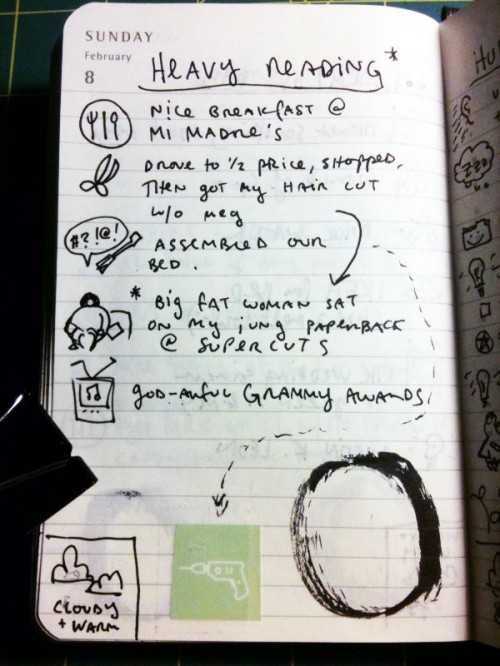 SUNDAY
February
8
HEAVY READING*
NICE BREAKFAST @
MI MADRE'S
DROVE TO 1/2 PRICE, SHOPPED,
THEN GOT MY HAIR CUT
W/O MEG
#?!@!
ASSEMBLED OUR
BED.
* BIG FAT WOMAN SAT
ON MY JUNG PAPERBACK
@ SUPERCUTS
GOD-AWFUL GRAMMY AWARDS
CLOUDY
+ WARM
HU
ZZZ